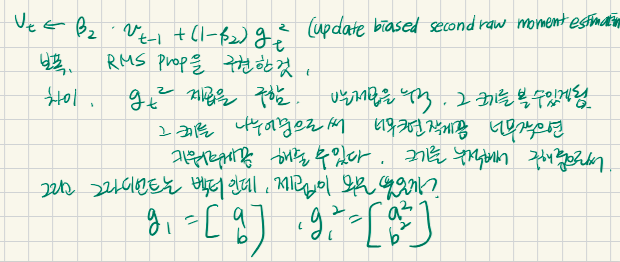 v_t ← β_2 · v_{t-1} + (1-β_2) g_t^2 (update biased second raw moment estimatin
보폭. RMS Prop을 구현한것.
차이. g_t^2 제곱을 구함. v는제곱을 누적. 그 크기를 볼수있게됨
그 크기를 나누어줌으로써 너무크면작게끔 너무작으면
해줄 수 있다. 크기를 누적해서 구해줌으로써.
그리고 그라디언트는 벡터인데, 제곱이 무슨 뜻일까?
g_1 = [a b], g_1^2 = [a^2 b^2]